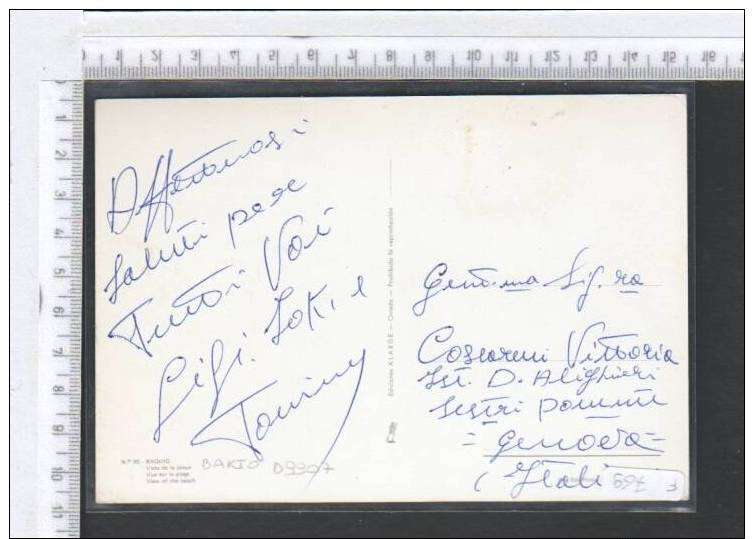 Affettuosi
Saluti per
Tutti Voi
Gigi. Loki e
Tommy
Nº 90 - BAQUIO
Vista de la playa
Vue sur la plage
View of the beach
BAKIO D9907
Ediciones ALARDE - Oviedo - Prohibida la reproducción
Gent.ma Sig.ra
Vittoria
Ist. D. Alighieri
Sestri ponente
= Genova =
Itali